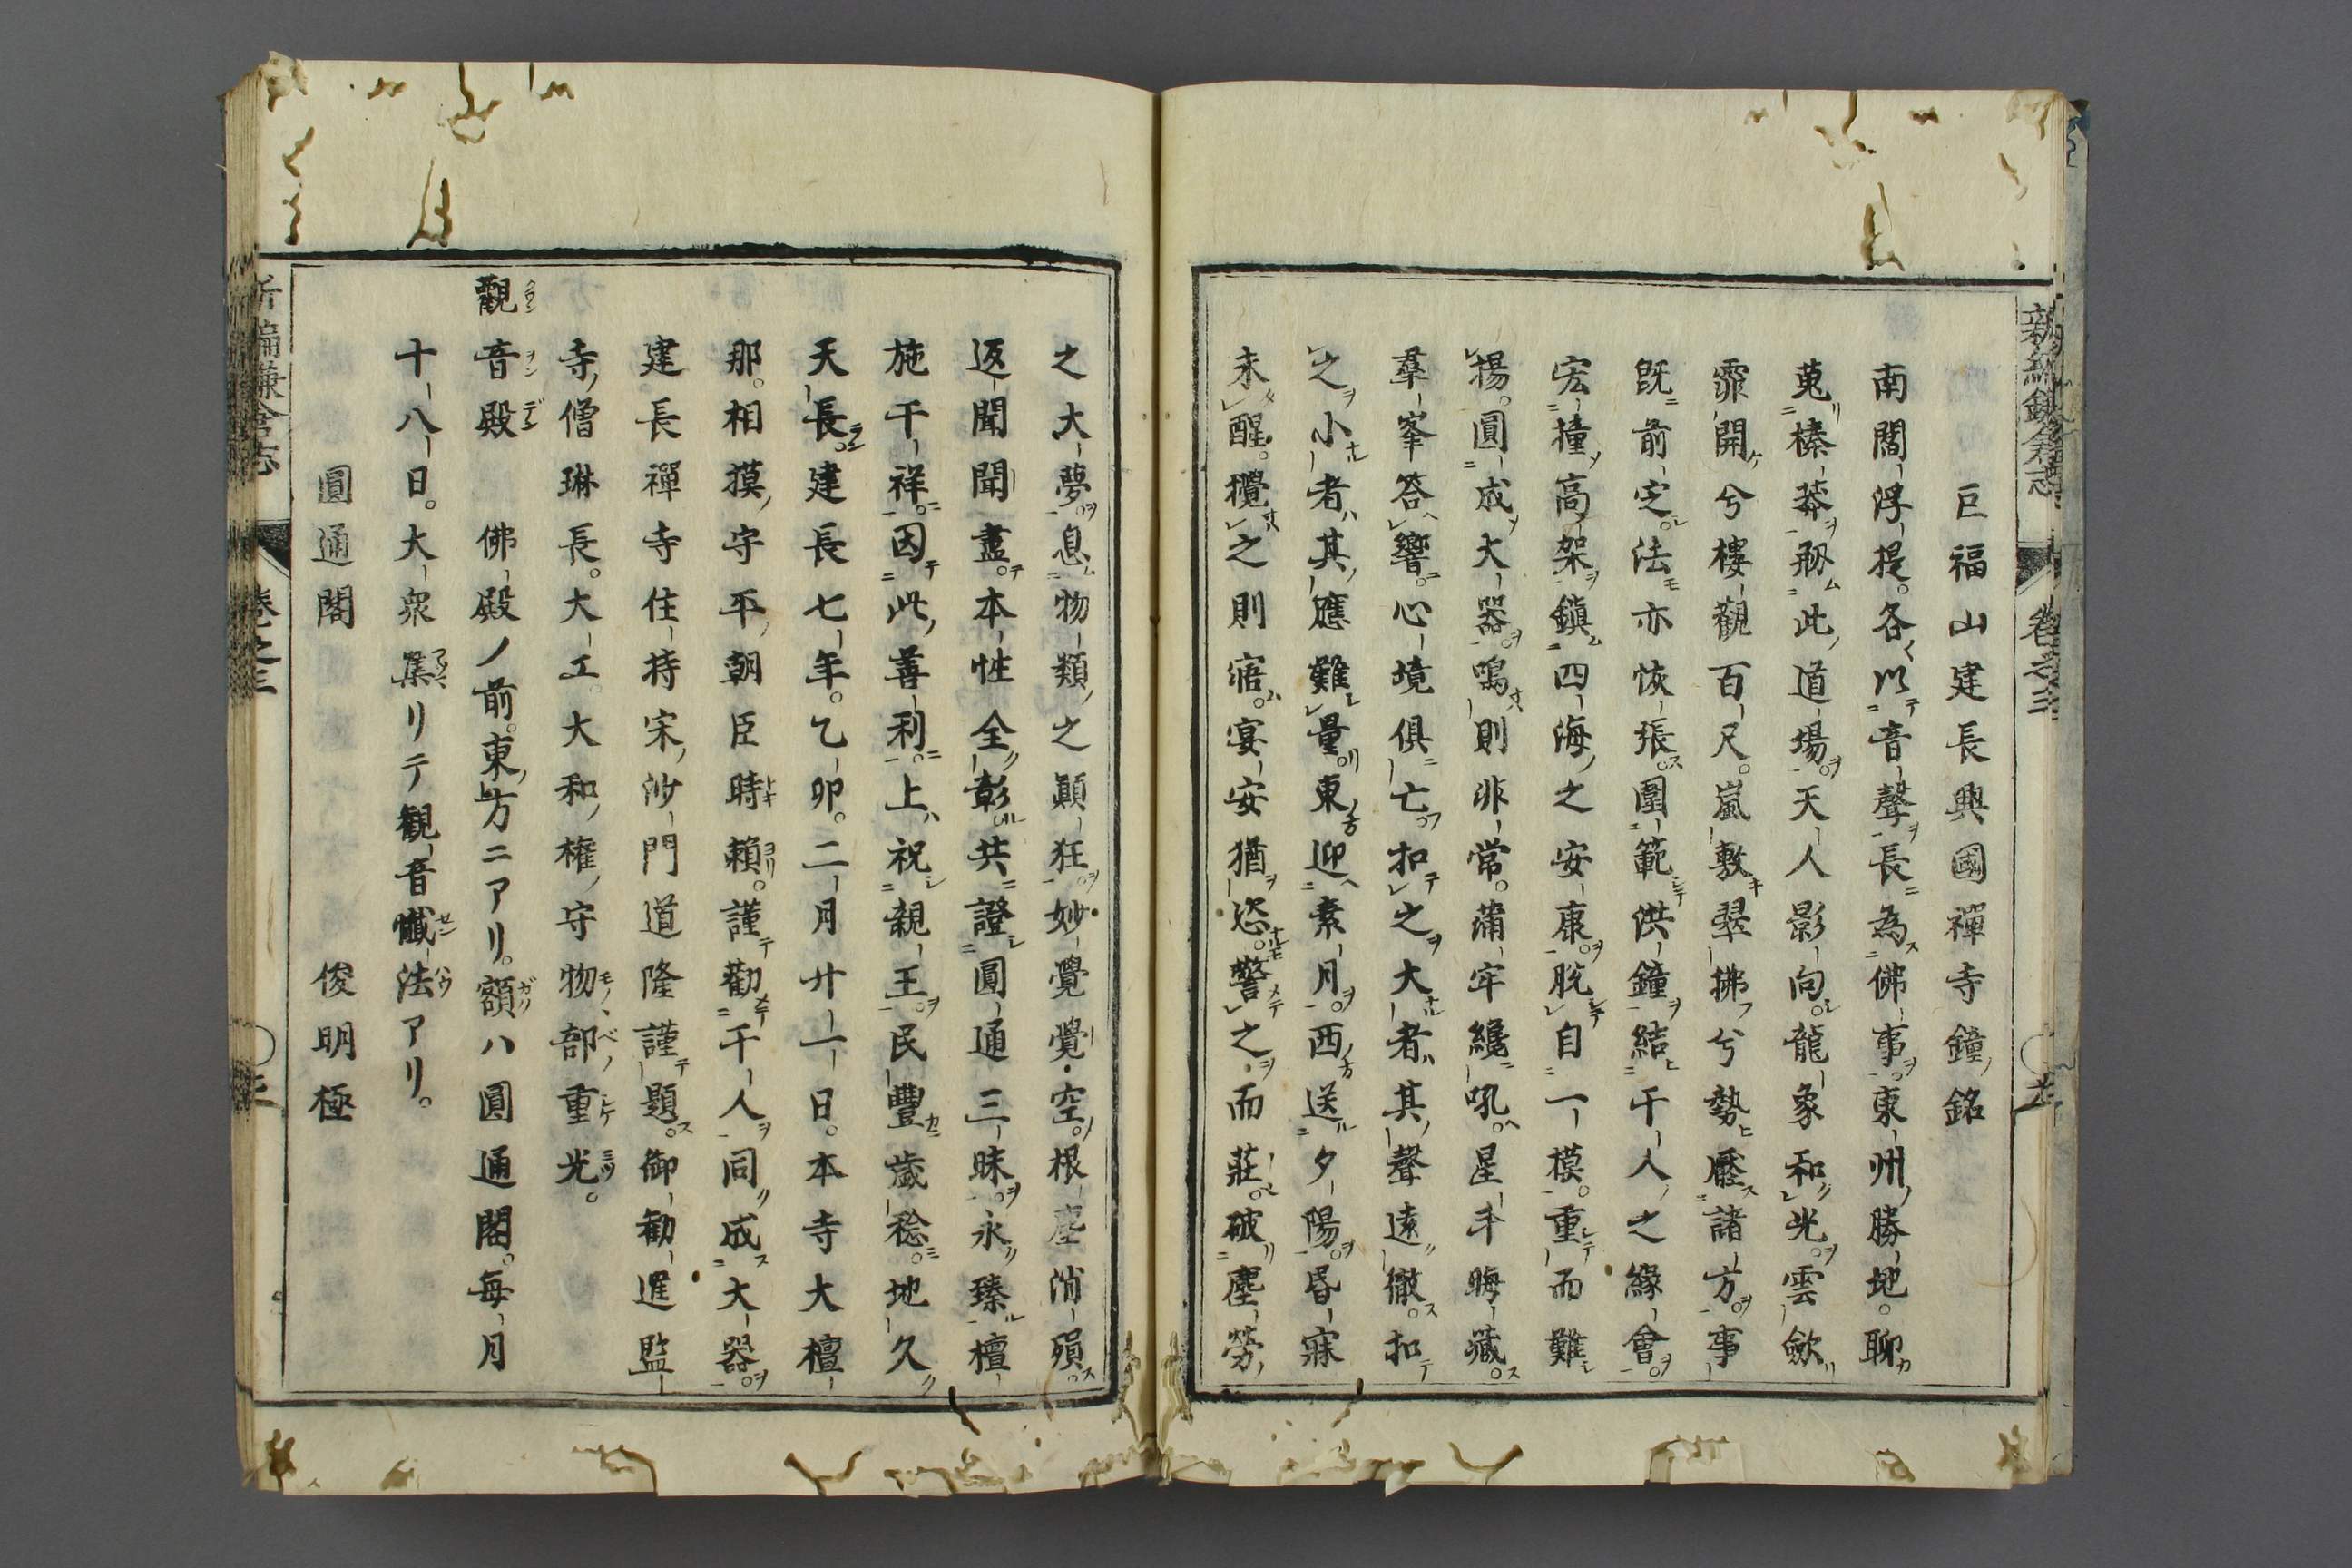 新編鎌倉志 卷之三
巨福山建長興國禪寺鐘銘
南閻浮提。各以音聲長為佛事。東州勝地。聊
蒐榛莽剏此道場。天人影向。龍象和光。雲歛
霏開兮樓觀百尺。嵐敷翠拂兮勢壓諸方。事
既前定。法亦恢張。圍範洪鐘結千人之緣會。
宏撞高架鎮四海之安康。脫自一模。重而難
揚。圓成大器。鳴則非常。蒲牢纔吼。星斗晦藏。
羣峯答響。心境俱亡。扣之大者其聲遠徹。扣
之小者其應難量。東迎素月。西送夕陽。昏寐
未醒。攪之則寤。宴安猶恣。警之而莊。破塵勞
之大夢。息物類之顚狂。妙覺覺空。根塵消殞。
返聞聞盡。本性全彰。共證圓通三昧。永臻檀
施千祥。因此善利。上祝親王。民豐歲稔。地久
天長。建長七年。乙卯。二月廿一日。本寺大檀
那。相摸守平朝臣時賴。謹勸千人同成大器。
建長禪寺住持宋沙門道隆謹題。御勸進監
寺僧琳長。大工大和權守物部重光。
觀音殿 佛殿ノ前。東方ニアリ。額ハ圓通閣。每月
十八日。大衆集リテ観音懺法アリ。
圓通閣 俊明極
新編鎌倉志 卷之三